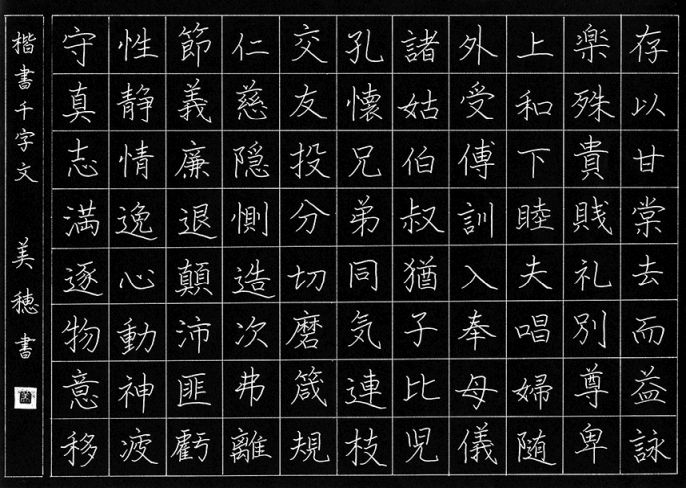 存以甘棠去而益詠
楽殊貴賎礼別尊卑
上和下睦夫唱婦随
外受傅訓入奉母儀
諸姑伯叔猶子比児
孔懐兄弟同気連枝
交友投分切磨箴規
仁慈隠惻造次弗離
節義廉退顛沛匪虧
性静情逸心動神疲
守真志満逐物意移
楷書千字文 美穂書